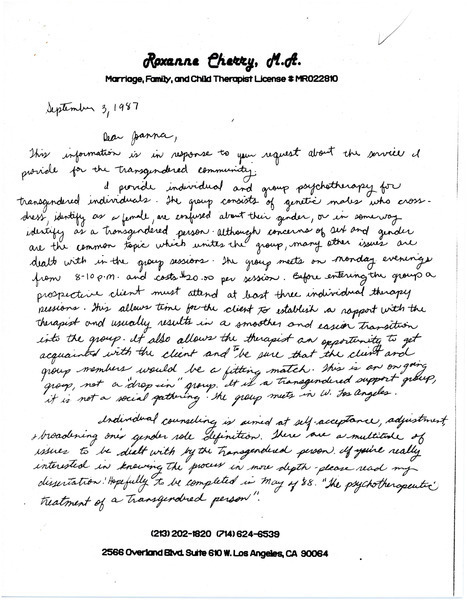 Roxanne Cherry, M.A.
Marriage, Family, and Child Therapist License # MR022810
September 3, 1987
Dear Joanna,
This information is in response to your request about the service I
provide for the transgendered community.
I provide individual and group psychotherapy for
transgendred individuals. The group consists of genetic males who cross-
dress, identify as a female, are confused about their gender, or in someway
identify as a transgendered person. Although concerns of sex and gender
are the common topic which unites the group, many other issues are
dealt with in the group sessions. The group meets on monday evenings
from 8-10 p.m. and costs $20.00 per session. Before entering the group a
prospective client must attend at least three individual therapy
sessions. This allows time for the client to establish a rapport with the
therapist and usually results in a smoother and easier transition
into the group. It also allows the therapist an opportunity to get
acquainted with the client and to be sure that the client and
group members would be a fitting match. This is an on going
group, not a "drop in" group. It is a transgendered support group,
it is not a social gathering. The group meets in W. Los Angeles.
Individual counseling is aimed at self-acceptance, adjustment
& broadening one's gender role definition. There are a multitude of
issues to be dealt with by the transgendered person. If you're really
interested in knowing the process in more depth please read my
dissertation. Hopefully to be completed in May of '88. "The psychotherapeutic
treatment of a transgendred person".
(213) 202-1820 (714) 624-6539
2566 Overland Blvd. Suite 610 W. Los Angeles, CA 90064